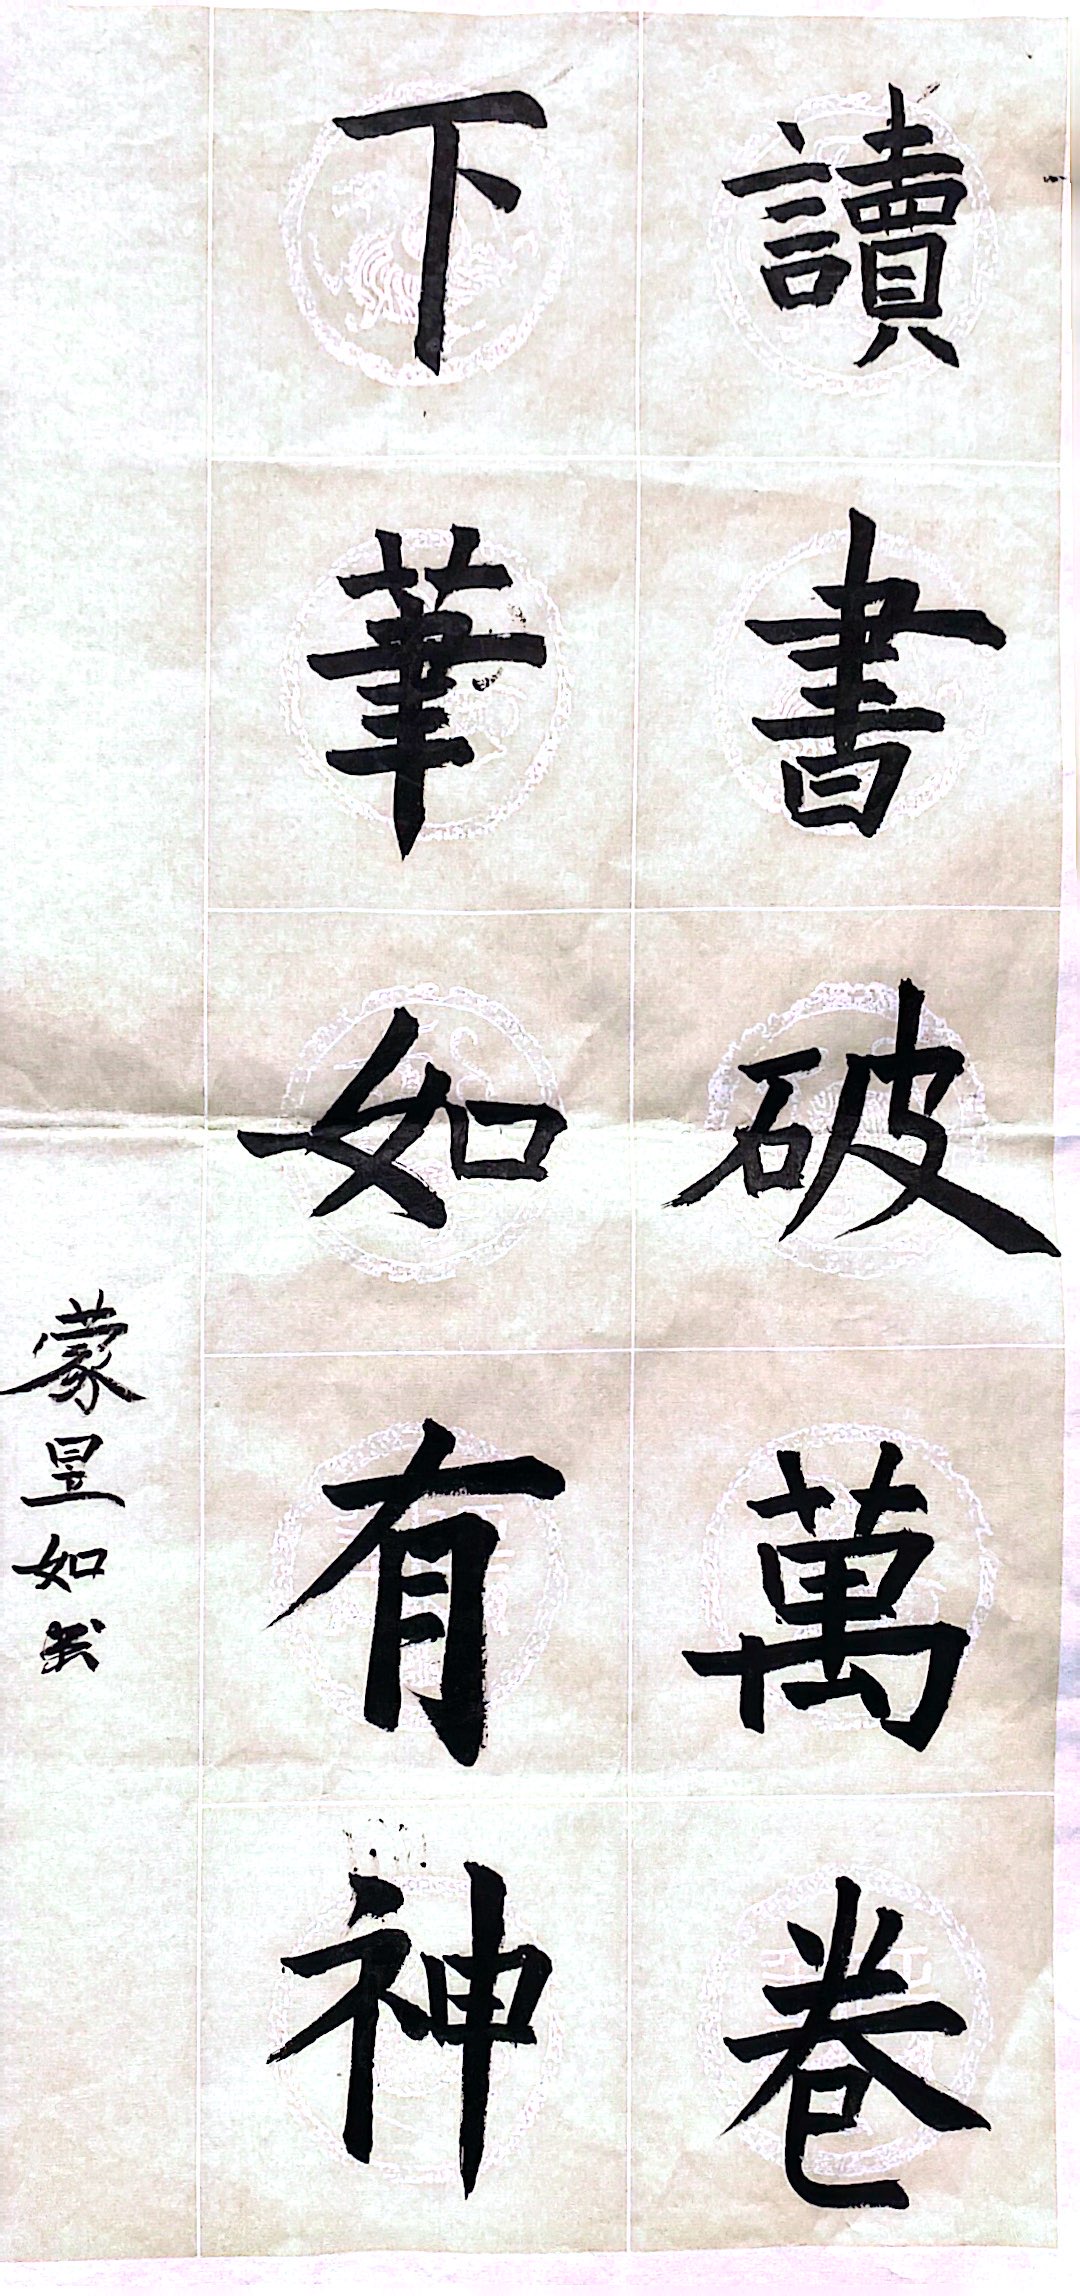 讀書破萬卷
下筆如有神
蒙昱如